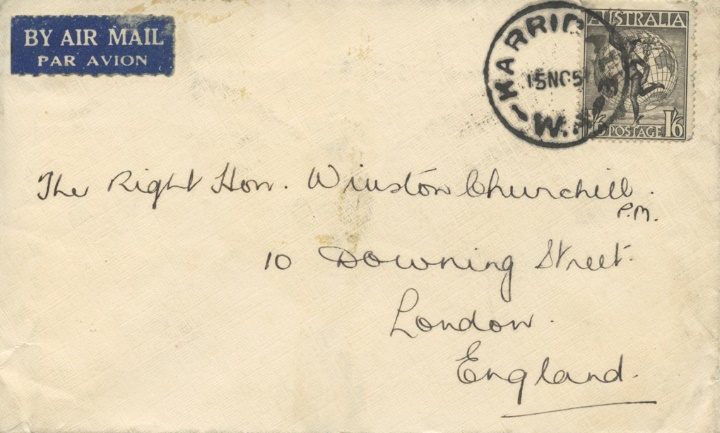 BY AIR MAIL
PAR AVION
AUSTRALIA
15NO5
W.A.
POSTAGE 1/6
The Right Hon. Winston Churchill.
P.M.
10 Downing Street.
London.
England.